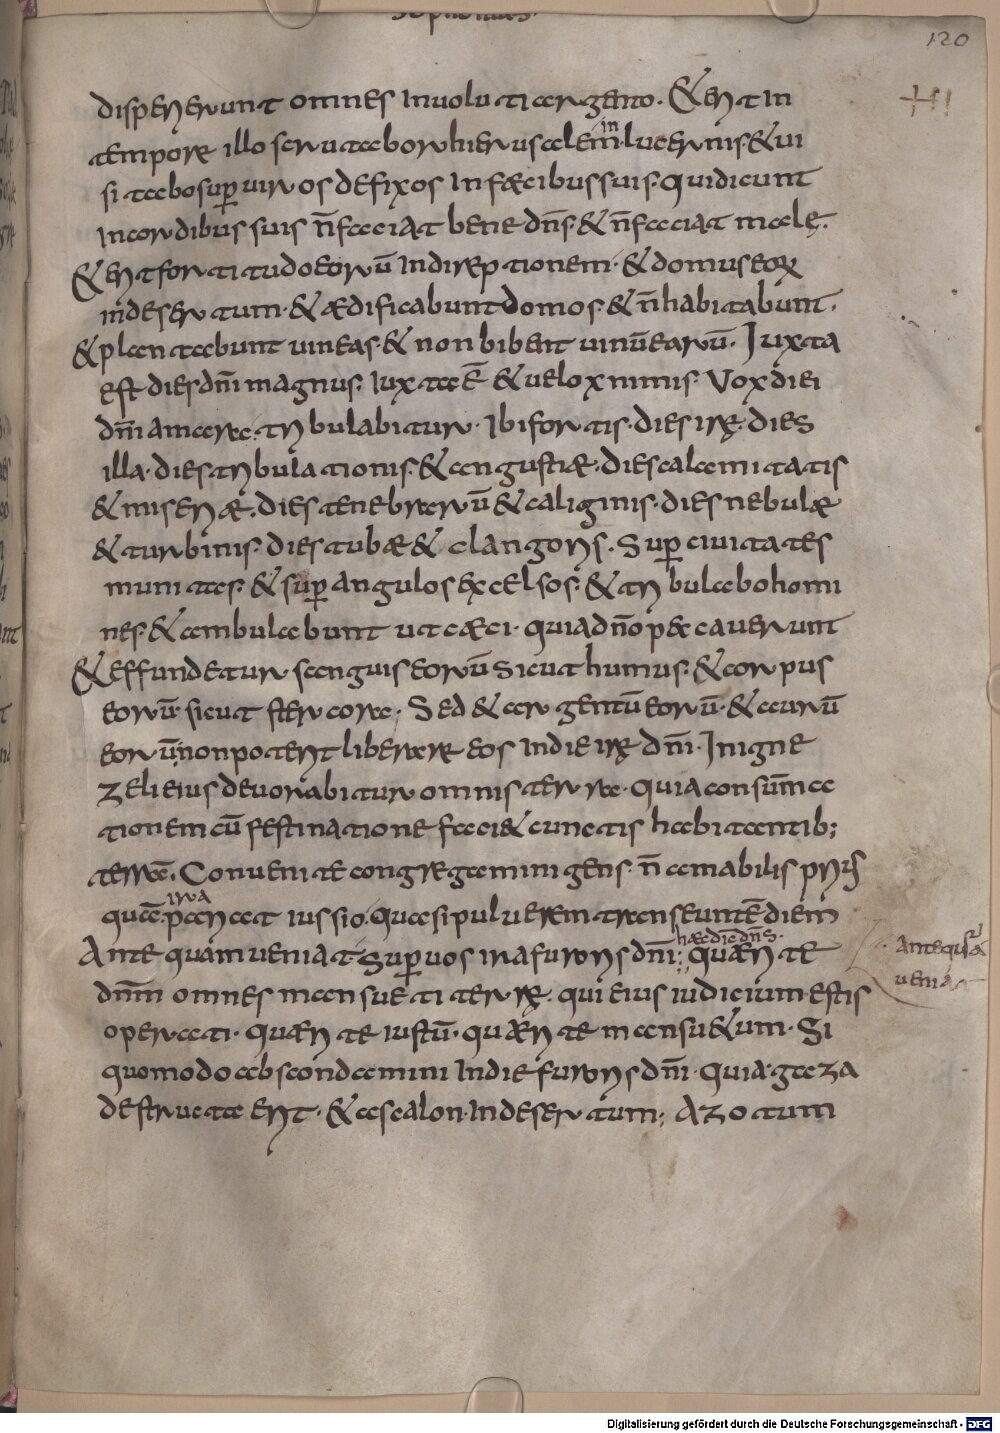 Sophonias.
120
disperierunt omnes involuti argento. & erit in
tempore illo scrutabor hierusalem in lucernis & vi
sitabo sup̄ viros defixos in fæcibus suis. qui dicunt
in cordibus suis n̄ faciat bene dn̄s. & n̄ faciat male.
& erit fortitudo eorū in direptionem. & domus eorꝝ
in desertum. & ædificabunt domos. & n̄ habitabunt.
& plantabunt vineas. & non bibent vinū earū. Juxta
est dies dn̄i magnus. Iuxta ē & velox nimis. Vox diei
dn̄i amara. tribulabitur. Ibi fortis. dies irę. dies
illa. dies tribulationis. & angustiæ. dies calamitatis
& miseriæ. dies tenebrarū & caliginis. dies nebulæ
& turbinis. dies tubæ & clangoris. Sup̄ civitates
munitas. & sup̄ angulos excelsos. & tribulabo homi
nes. & ambulabunt ut cæci. quia dn̄o peccaverunt
& effundetur sanguis eorū sicut humus. & corpus
eorū. sicut stercora. Sed & argentū eorū. & aurū
eorū. non poterit liberare eos in die irę dn̄i. In igne
zeli eius devorabitur omnis terra. quia consūma
tionem cū festinatione faci& cunctis habitantib;
terrā. Convenite congregamini gens. n̄ amabilis priꝰ
ira
quā. pariat iussio. quasi pulverem transeuntē diem
hæc diē dn̄s.
Ante quam veniat sup̄ vos ira furoris dn̄i; quærite
Antequā
veniat
dnm̄ omnes mansueti terrę. qui eius iudicium estis
operati. quærite iustū. quærite mansu&um. Si
quomodo abscondamini in die furoris dn̄i. quia gaza
destructa erit. & ascalon in desertum; Azotum
Digitalisierung gefördert durch die Deutsche Forschungsgemeinschaft - DFG